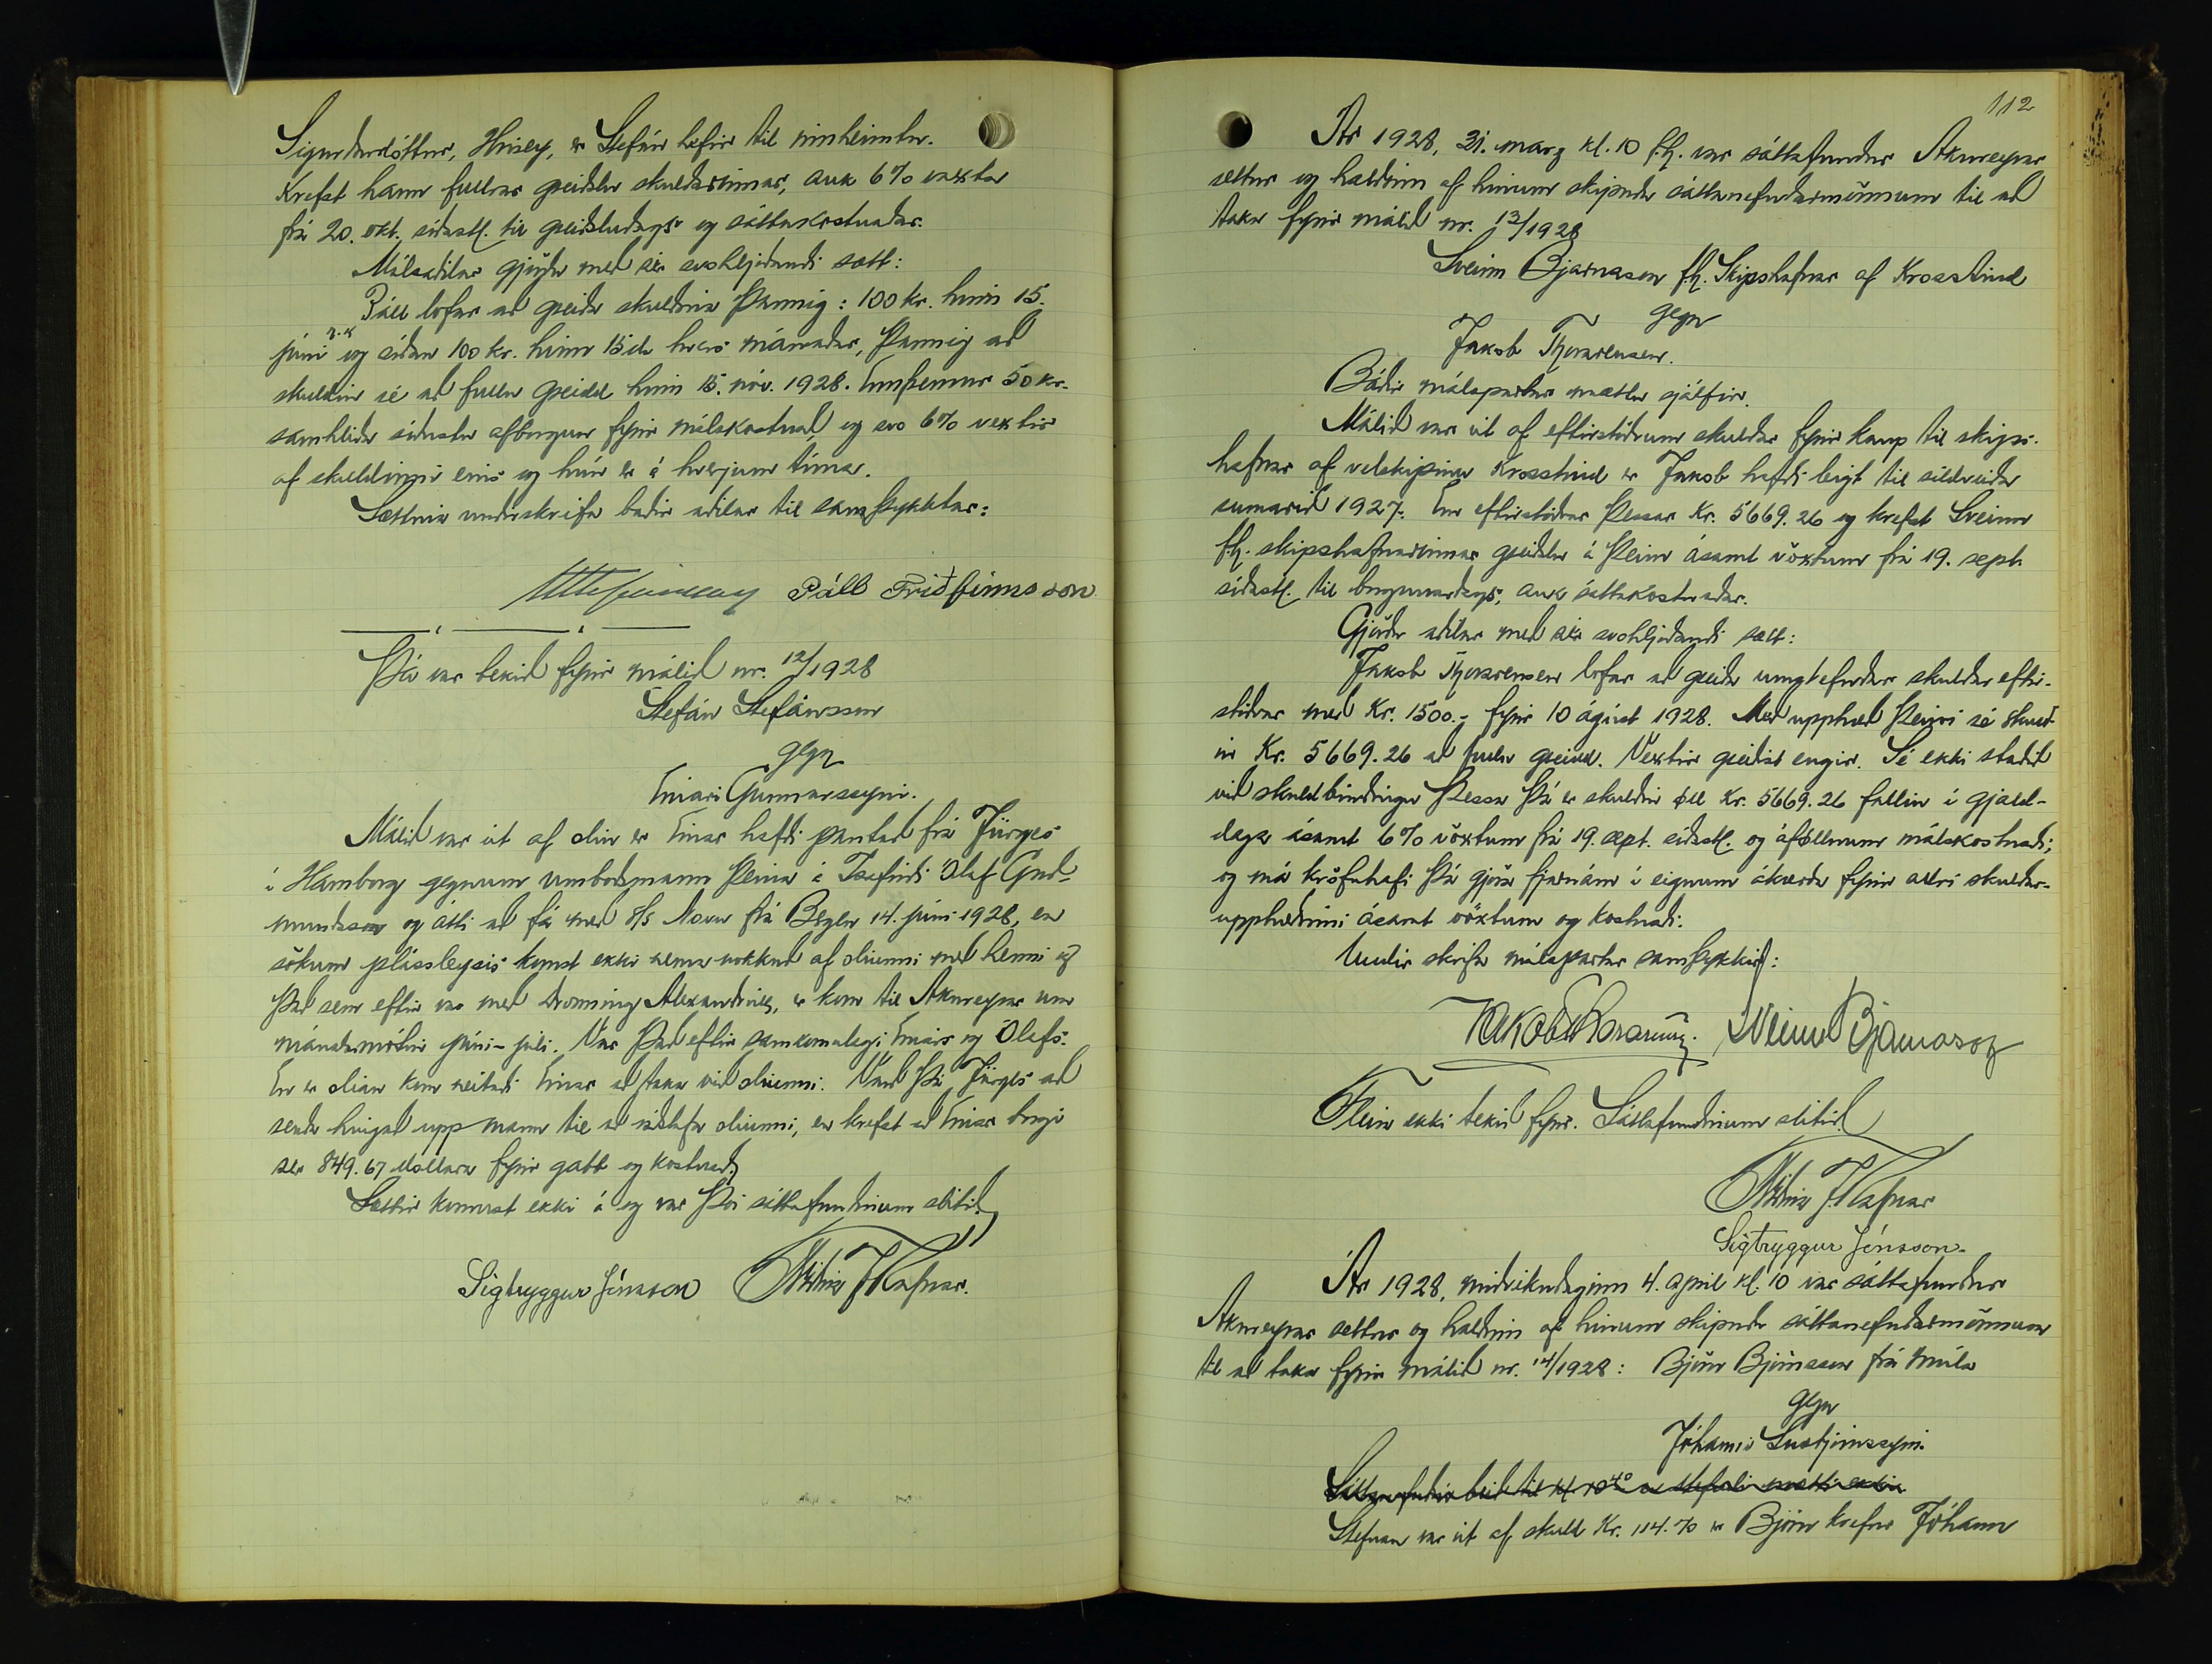 Sigurðardóttur, Hrísey, er Stefán hefir til innheimtu.
Krefst hann fullrar greiðslu skuldarinnar, auk 6% vaxta
frá 20. okt. síðastl. til greiðsludags og sáttakostnaðar.
Málsaðilar gjörðu með sér svohljóðandi sætt:
Páll lofar að greiða skuldina þannig: 100 kr. hinn 15.
júní n.k. og síðan 100 kr. hinn 15da hvers mánaðar, þannig að
skuldin sé að fullu greidd hinn 15. nóv. 1928. Ennfremur 50 kr.
samhliða síðustu afborgun fyrir málskostnað, og svo 6% vextir
af skuldinni eins og hún er á hverjum tíma.
Sættina undirskrifa báðir aðilar til samþykktar:
Páll Friðfinnsson
Þá var tekið fyrir málið nr. 12/1928
Stefán Stefánsson
gegn
Einari Gunnarssyni.
Málið var út af olíu er Einar hafði pantað frá Jürges
í Hamborg gegnum umboðsmann þeirra á Ísafirði Ólaf Guð-
mundsson og átti að fá með S/s Nova frá Bergen 14. júní 1928, en
sökum plássleysis komst ekki nema nokkuð af olíunni með henni og
það sem eftir var með Dronning Alexandrine, er kom til Akureyrar um
mánaðamótin júní-júlí. Var það eftir samkomulagi Einars og Ólafs.
En er olían kom neitaði Einar að taka við olíunni. Varð þá Jürges að
senda hingað upp mann til að ráðstafa olíunni, en krefst að Einar borgi
sér 849.67 dollara fyrir gabb og kostnað.
Sættir komust ekki á og var því sáttafundinum slitið.
Sigtryggur Jónsson Friðrik J. Rafnar.
112
Ár 1928, 31. marz kl. 10 f.h. var sáttafundur Akureyrar
settur og haldinn af hinum skipuðu sáttanefndarmönnum til að
taka fyrir málið nr. 13/1928
Sveinn Bjarnason f.h. Skipshafnar af Krosstind
gegn
Jakob Thorarensen.
Báðir málspartar mættu sjálfir.
Málið var út af eftirstöðvum skuldar fyrir kaup til skips-
hafnar af vélskipinu Krosstind er Jakob hafði leigt til síldveiða
sumarið 1927. Eru eftirstöðvar þessar Kr. 5669.26 og krefst Sveinn
f.h. skipshafnarinnar greiðslu á þeim ásamt vöxtum frá 19. sept.
síðastl. til borgunardags, auk sáttakostnaðar.
Gjörðu aðilar með sér svohljóðandi sætt:
Jakob Thorarensen lofar að greiða umgetnar skuldar eftir-
stöðvar með Kr. 1500.- fyrir 10 ágúst 1928. Með upphæð þeirri sé skuld-
in Kr. 5669.26 að fullu greidd. Vextir greiðist engir. Sé ekki staðið
við skuldbindingu þessa þá er skuldin öll Kr. 5669.26 fallin í gjald-
daga ásamt 6% vöxtum frá 19. sept. síðastl. og áföllnum málskostnaði,
og má kröfuhafi þá gjöra fjárnám í eignum ákærða fyrir allri skuldar-
upphæðinni ásamt vöxtum og kostnaði.
Undir skrifa málspartar samþykkir:
Jakob Thorarensen. Sveinn Bjarnason
Fleira ekki tekið fyrir. Sáttafundinum slitið.
Friðrik J. Rafnar
Sigtryggur Jónsson.
Ár 1928, miðvikudaginn 4. apríl kl. 10 var sáttafundur
Akureyrar settur og haldinn af hinum skipuðu sáttanefndarmönnum
til að taka fyrir málið nr. 14/1928: Björn Björnsson frá Múla
gegn
Jóhanni Sveinbjörnssyni.
Sáttanefndin beið til kl. 10 40 en stefndi mætti ekki
Stefnan var út af skuld Kr. 114.70 er Björn krefur Jóhann